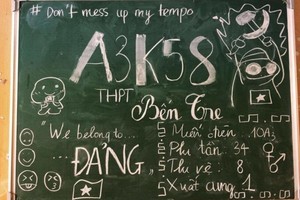 # Don't mess up my tempo
A3K58
THPT
Bến Tre
"We belong to...
ĐẢNG"
Muốn điên: 10A3
Phi tần: 34
Thu vệ: 8
Xuất cung: 1